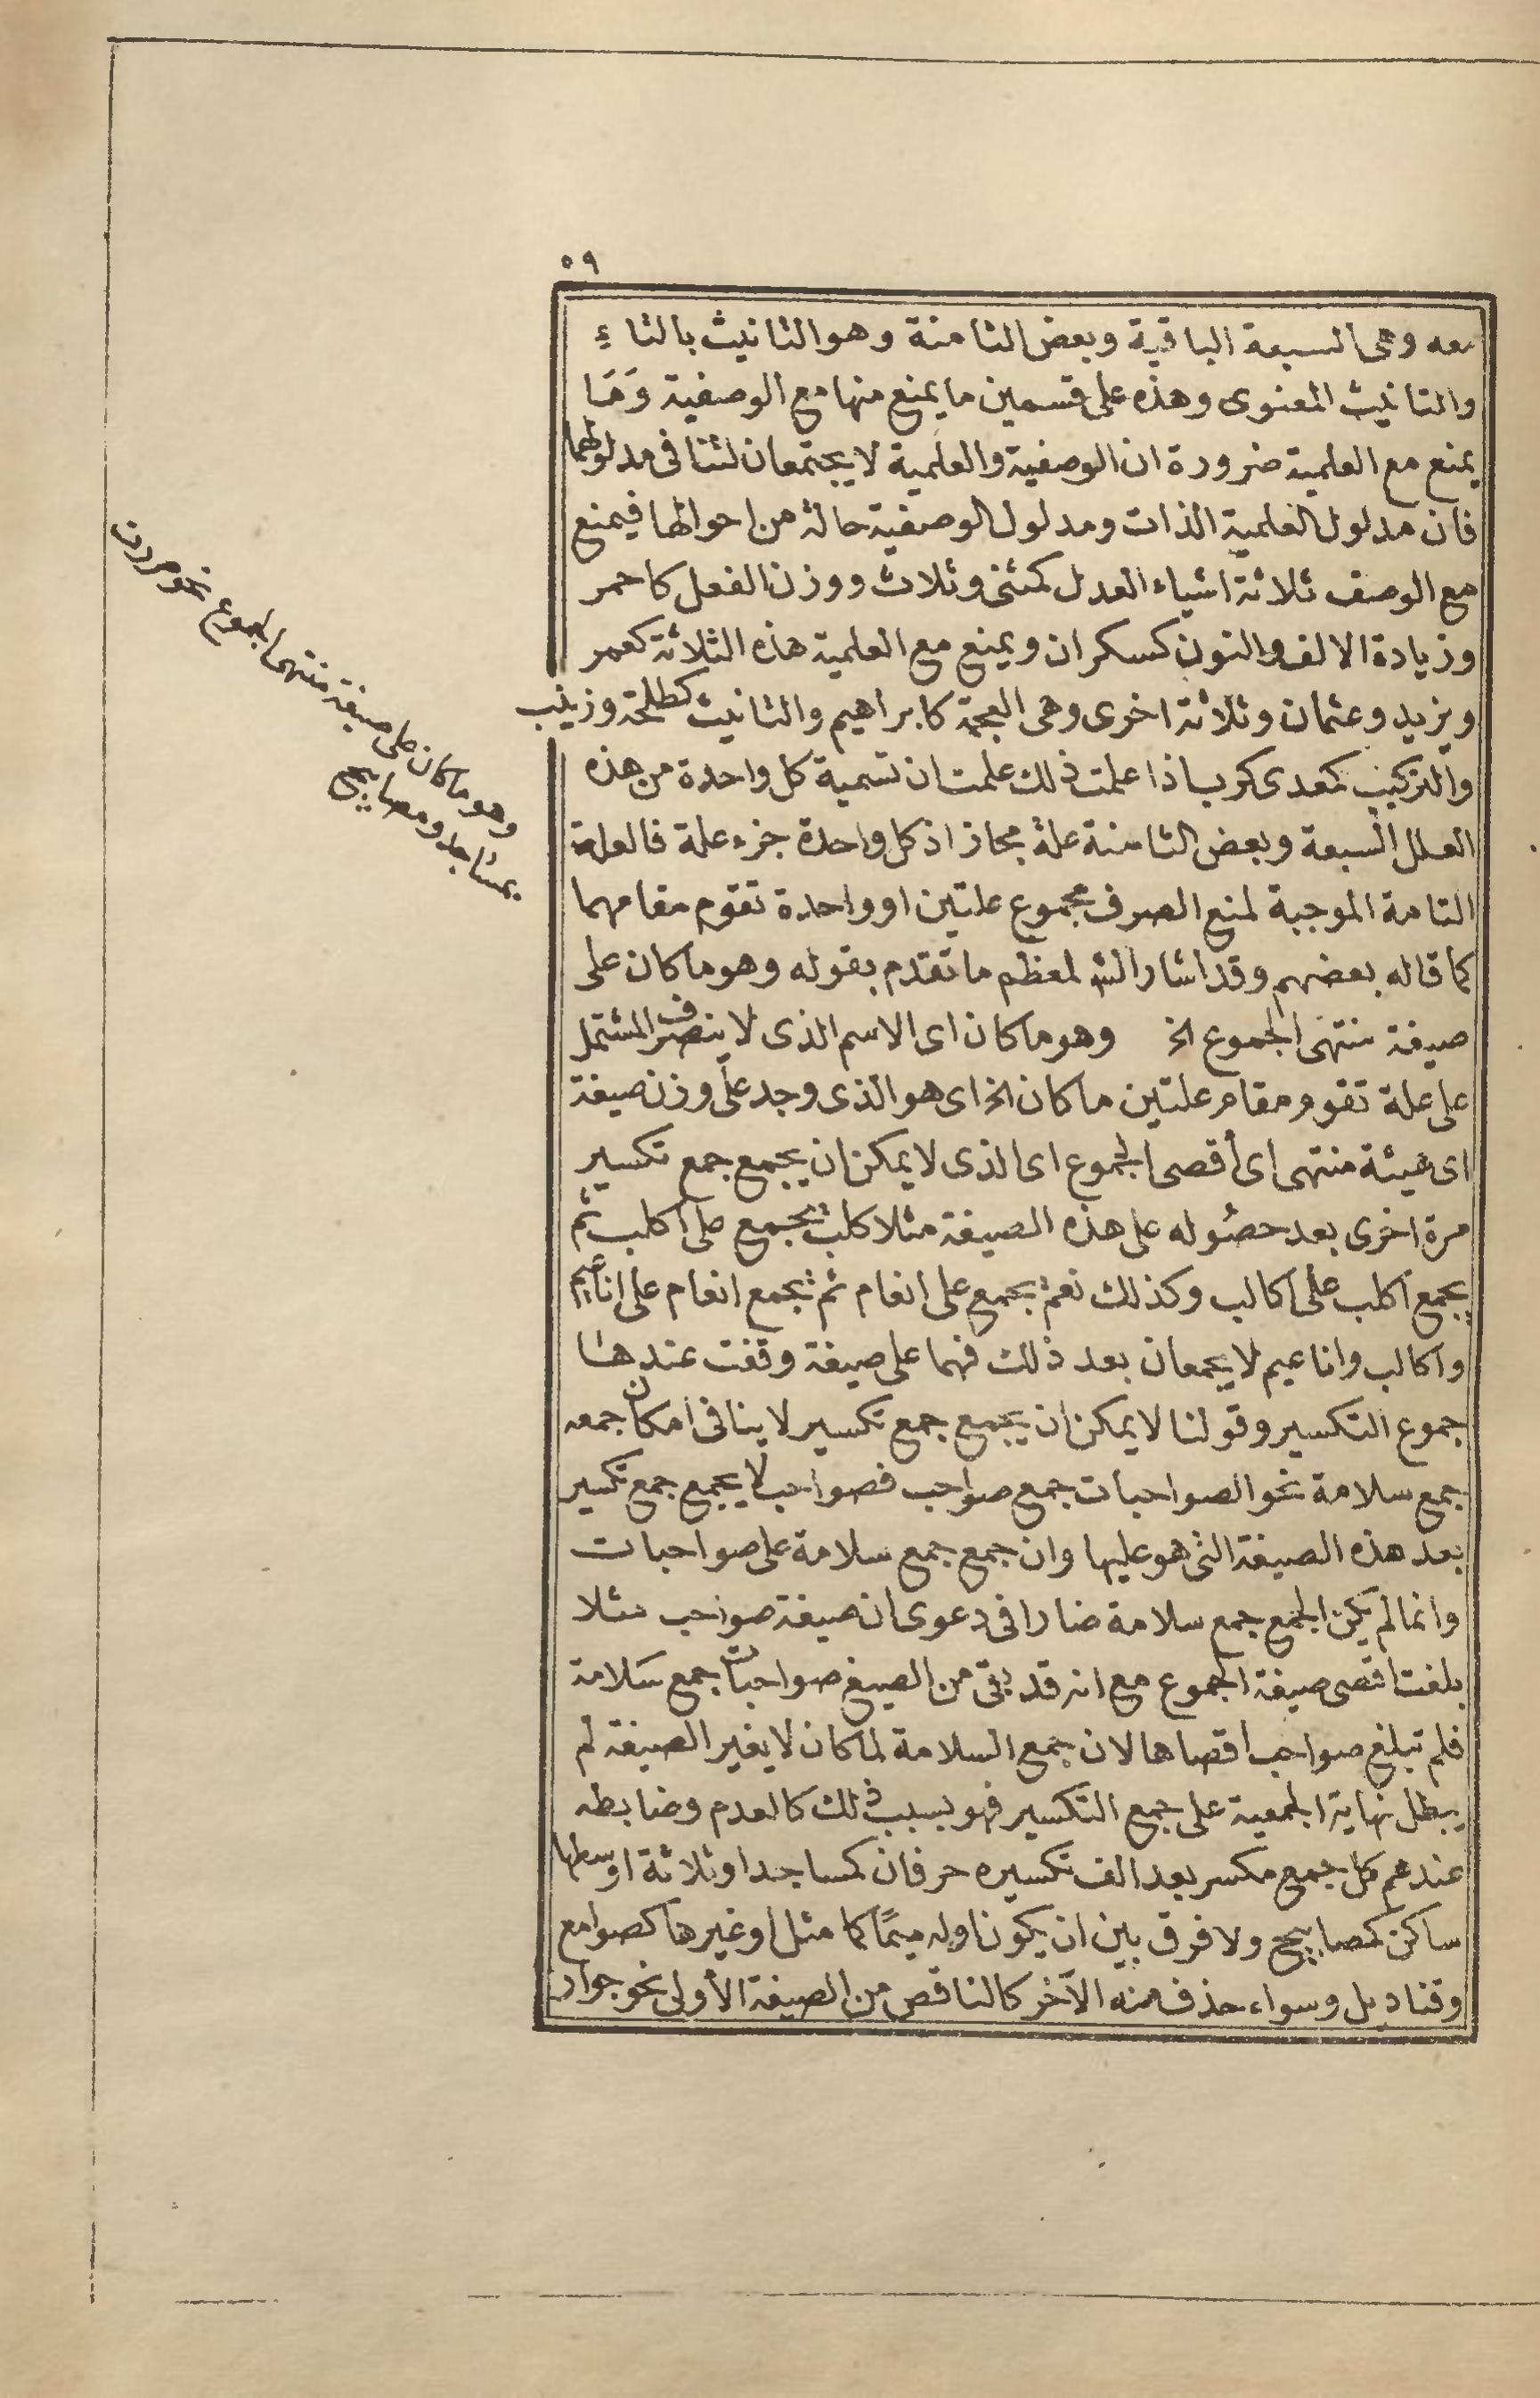 ٥٩
معه وهى السبعة الباقية وبعض الثامنة وهو التانيث بالتاء
والتانيث المعنوى وهذه على قسمين ما يمنع منها مع الوصفية وَمَا
يمنع مع العلمية ضرورة ان الوصفية والعلمية لا يجتمعان لتنافى مدلولهما
فان مدلول العلمية الذات ومدلول الوصفية حالة من احوالها فيمنع
مع الوصف ثلاثة اشياء العدل كمثنى وثلاث ووزن الفعل كاحمر
وزيادة الالف والنون كسكران ويمنع مع العلمية هذه الثلاثة كعمر
ويزيد وعثمان وثلاثة اخرى وهى العجمة كابراهيم والتانيث كطلحة وزينب
والتركيب كمعدى كرب اذا علمت ذلك علمت ان تسمية كل واحدة من هذه
العلل السبعة وبعض الثامنة علة مجاز اذ كل واحدة جزء علة فالعلة
التامة الموجبة لمنع الصرف مجموع علتين او واحدة تقوم مقامهما
كما قاله بعضهم وقد اشار الش لمعظم ما تقدم بقوله وهو ما كان على
صيغة منتهى الجموع الخ وهو ما كان اى الاسم الذى لا ينصرف المشتمل
على علة تقوم مقام علتين ما كان الخ اى هو الذى وجد على وزن صيغة
اى هيئة منتهى اى أقصى الجموع اى الذى لا يمكن ان يجمع جمع تكسير
مرة اخرى بعد حصوله على هذه الصيغة مثلا كلب يجمع على اكلب ثم
يجمع اكلب على اكالب وكذلك نعم يجمع على انعام ثم يجمع انعام على اناعيم
واكالب واناعيم لا يجمعان بعد ذلك فهما على صيغة وقفت عندها
جموع التكسير وقولنا لا يمكن ان يجمع جمع تكسير لا ينافى امكان جمعه
جمع سلامة نحو الصواحبات جمع صواحب فصواحب لا يجمع جمع تكسير
بعد هذه الصيغة التى هو عليها وان جمع جمع سلامة على صواحبات
وانما لم يكن الجمع جمع سلامة ضارا فى دعوى ان صيغة صواحب مثلا
بلغت اقصى صيغة الجموع مع انه قد بقى من الصيغ صواحبات جمع سَلامة
فلم تبلغ صواحب أقصاها لان جمع السلامة لما كان لا يغير الصيغة لم
يبطل نهاية الجمعية على جمع التكسير فهو بسبب ذلك كالعدم وضابطه
عندهم كل جمع مكسر بعد الف تكسيره حرفان كمساجد او ثلاثة اوسطها
ساكن كمصابيح ولا فرق بين ان يكون اوله ميمًا كما مثل او غيرها كصوامع
وقناديل وسواء حذف منه الآخر كالناقص من الصيغة الأولى نحو جوار
وهو ما كان على صيغة منتهى الجموع نحو مررت
بمساجد ومصابيح